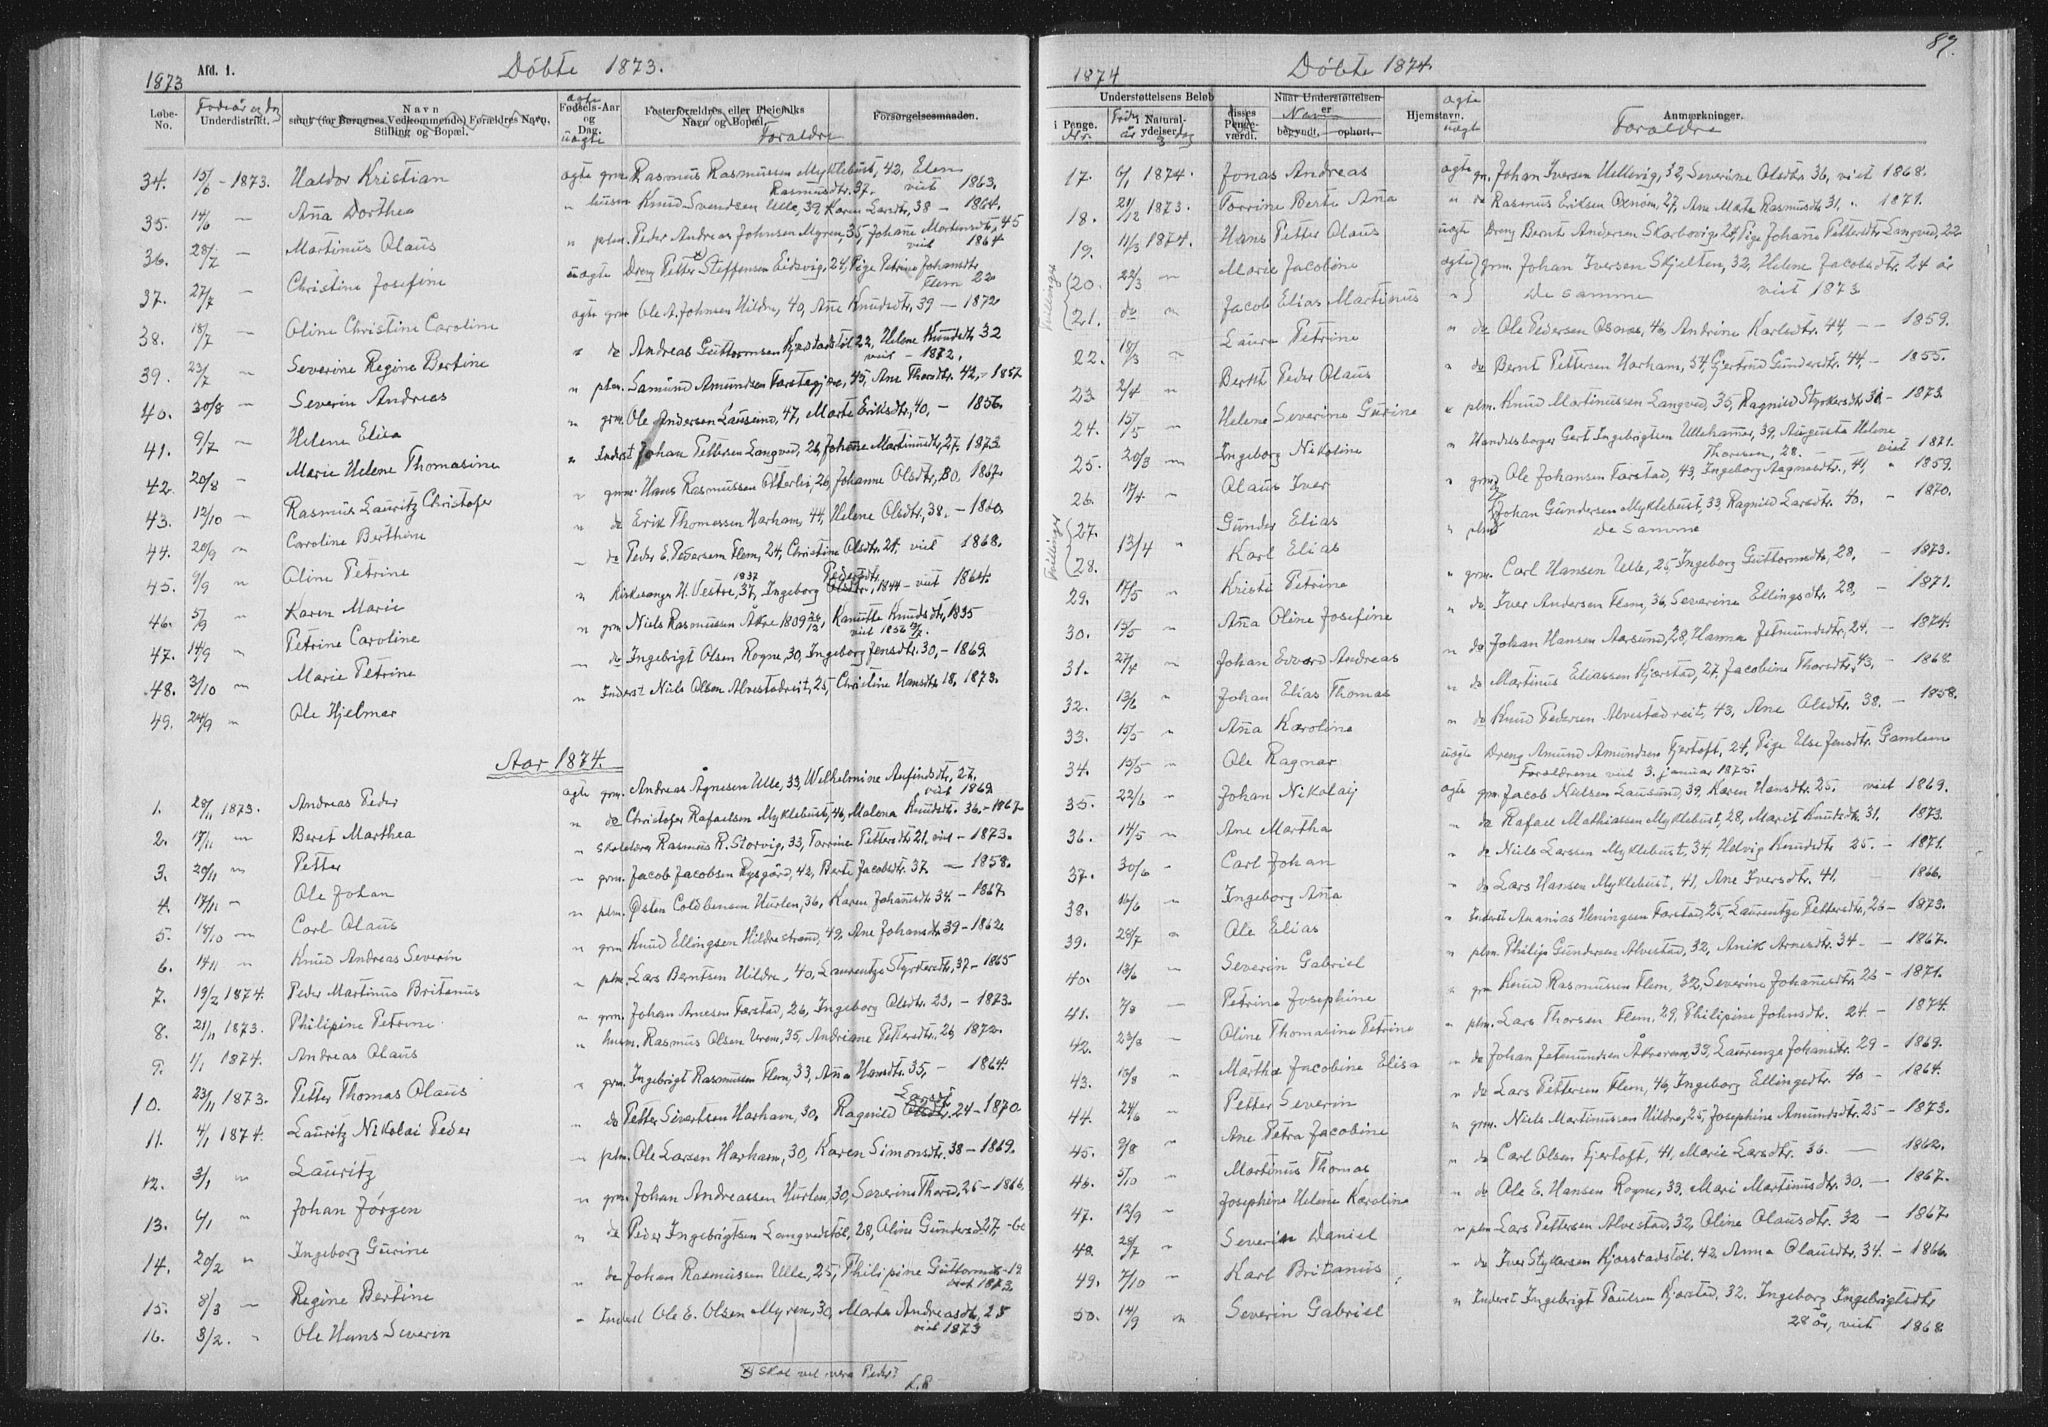 Døbte 1873.
1873 Afd. 1.
Løbe-No. Fødeår og Dag Underdistrikt. Navn samt (for Børnenes Vedkommende) Forældres Navn, Stilling og Bopæl. ægte uægte Fødsels-Aar og Dag. Fosterforældres, eller Pleiefolks Navn og Bopæl. Forældre Forsørgelsesmaaden.
34. 15/6 - 1873. Haldor Kristian ægte grm. Rasmus Rasmussen Myklebust, 42, Elen Rasmusdtr. 37. viet 1863.
35. 14/6 — Aña Dorthea " husm Knud Svendsen Ulle, 39, Karen Larsdtr, 38 — 1864.
36. 28/7 — Martinus Olaus " plm. Peder Andreas Johnsen Myren, 35, Johañe Martensdtr, 45 viet 1864
37. 27/7 — Christine Josefine uægte Dreng Petter Steffensen Eidsvig, 24, Pige Petrine Johansdtr Flem 22
38. 18/7 — Oline Christine Caroline ægte grm Ole A. Johnsen Hildre, 40, Ane Knudsdtr, 39 — 1872
39. 23/7 — Severine Regine Bertine " do Andreas Guttormsen Kjerstadstøl 22, Helene Knudsdtr 32 viet — 1872.
40. 30/8 — Severin Andreas " plm. Samund Amundsen Farstegjøre, 45, Ane Thorsdtr. 42, - 1857
41. 9/7 — Helene Elisa " grm. Ole Andersen Lausund, 47, Marte Eriksdtr, 40, — 1856.
42. 20/8 — Marie Helene Thomasine " Inderst Johan Pettersen Langved, 26, Johañe Martinusdtr, 27. 1873
43. 12/10 — Rasmus Lauritz Christofer " grm. Hans Rasmussen Otterlei, 26, Johanne Olsdtr, 30, 1867.
44. 20/9 " Caroline Berthine " do Erik Thomessen Harham, 44, Helene Olsdtr, 38. — 1860.
45. 9/9 " Oline Petrine " do Peder E. Pedersen Flem, 24, Christine Olsdtr. 24, viet 1868.
46. 5/9 " Karen Marie " Kirkesanger H. Vestre, 37, 1837 Ingeborg Pedersdtr. 1844 — viet 1864.
47. 14/9 " Petrine Caroline " grm Niels Rasmussen Åkre 1809 , Kanutte Knudsdtr, 1835 viet 1856
48. 3/10 " Marie Petrine " do Ingebrigt Olsen Rogne, 30, Ingeborg Jensdtr. 30, — 1869
49. 24/9 " Ole Hjelmer " Inderst Niels Olsen Alvestadreit, 25, Christine Hansdtr 18, 1873.
Aar 1874.
1. 28/11 1873. Andreas Peder ægte grm. Andreas Agnesen Ulle, 33, Wilhelmine Anfindsdtr, 27. viet 1869
2. 17/11 " Beret Marthea " do Christofer Rafaelsen Myklebust, 46, Malena Knudsdtr. 36. - 1867
3. 20/11 " Petter " Skolelærer Rasmus R. Storvig, 33, Torrine Pettersdtr 21. viet — 1873.
4. 17/11 " Ole Johan " grm. Jacob Jacobsen Rysgård, 42, Berte Jacobsdtr. 37. — 1858.
5. 18/10 — Carl Olaus " plm. Østen Coldbensen Hurlen, 36, Karen Johañsdtr. 34. — 1867.
6. 14/11 " Knud Andreas Severin " grm Knud Ellingsen Hildrestrand, 49, Ane Johansdtr. 39 — 1862.
7. 19/2 1874. Peder Martinus Britanus " plm. Lars Berntsen Hildre, 40, Laurentze Styrkersdtr, 37 — 1865
8. 21/11 1873. Philipine Petrine " grm. Johan Arnesen Farstad, 26, Ingeborg Olsdtr. 23, — 1873.
9. 1/1 1874. Andreas Olaus " husm. Rasmus Olsen Urem, 35, Andriane Pettersdtr. 26 1872.
10. 23/11 1873. Petter Thomas Olaus " grm. Ingebrigt Rasmussen Flem, 33, Aña Hansdtr. 35, — 1864.
11. 4/1 1874. Lauritz Nikolai Peder " do Petter Sivertsen Harham, 30, Ragnild Larsdtr. 24 — 1870
12. 3/1 " Lauritz " plm. Ole Larsen Harham, 30, Karen Simonsdtr. 38 — 1869.
13. 6/1 " Johan Jørgen " grm. Johan Andreassen Hurlen, 30, Severine Thorsd, 26 — 1866
14. 20/2 " Ingeborg Gurine " do Peder Ingebrigtsen Langvedstøl, 28, Oline Gundersd. 27,
15. 8/3 — Regine Bertine " do Johan Rasmussen Ulle, 25, Philipine Guttormsd - 19 viet 1873
16. 3/2. " Ole Hans Severin " Inderst Ole E. Olsen Myren, 30, Marte Andreasdtr, 28 viet 1873
x) Skal vel vera Peder?
L.R.
87.
Døbte 1874
1874
Understøttelsens Beløb Naar Understøttelsen er
i Penge. Nr. Føde år i Naturalydelser. dag disses Penge-værdi. Navn begyndt. ophørt. Hjemstavn. ægte uægte Anmærkninger. Forældre
17. 6/1 1874. Jonas Andreas ægte gr. Johan Iversen Hellevig, 32, Severine Olsdtr. 36, viet 1868.
18. 21/12 1873. Torrine Berte Aña " do Rasmus Eriksen Oxnøen, 27, Ane Marte Rasmusdtr. 31, " 1871.
19. 4/3 1874. Hans Petter Olaus uægte Dreng Bernt Andersen Skarbøvig, 24, Pige Johañe Pettersdtr Langved, 22
Tvillinger
20. 22/3 " Marie Jacobine ægte grm. Johan Iversen Skjelten, 32, Helene Jacobsdtr. 24 år viet 1873
21. do " Jacob Elias Martinus " De samme
22. 18/3 " Laura Petrine " do Ole Pedersen Osnes, 46, Andrine Karlsdtr. 44, — 1859.
23. 2/4 " Bernt Peder Olaus " do Bernt Pettersen Harham, 54, Gjertrud Gundersdtr. 44, — 1855.
24. 15/5 " Helene Severine Gurine " plm. Knud Martinussen Langved, 35, Ragnild Styrkersdtr. 31 — 1873.
25. 20/3 " Ingeborg Nikoline " Handelsborger Gert Ingebrigtsen Ullehamer, 39, Augusta Helene Thoresen, 28. — viet 1871.
26. 17/4 " Olaus Iver " grm Ole Johansen Farstad, 43, Ingeborg Aagnesdtr., 41, " 1859.
Tvillinger
27. Gunder Elias Johan Gundersen Myklebust, 33, Ragnild Larsdtr. 40. — 1870.
28. 13/4 " Karl Elias " plm De samme
29. 17/5 " Kristi Petrine " grm. Carl Hansen Ulle, 25, Ingeborg Guttormsdtr, 28, — 1873.
30. 15/5 " Aña Oline Josefine " do Iver Andersen Flem, 36, Severine Ellingsdtr. 28, — 1871.
31. 27/4 " Johan Edvard Andreas " do Johan Hansen Aarsund, 28, Hanna Jetmundsdtr, 24, — 1874.
32. 13/6 " Johan Elias Thomas " do Martinus Eliassen Kjerstad, 27, Jacobine Thorsdtr, 43, — 1868.
33. 15/5 " Aña Karoline " do Knud Pedersen Alvestadreit, 43, Ane Olsdtr. 38. — 1858.
34. 15/5 " Ole Ragnar uægte Dreng Amund Amundsen Fjertoft, 24, Pige Else Jensdtr. Gamlem
Forældrene viet 3. januar 1875.
35. 22/6 " Johan Nikolaij ægte grm Jacob Nielsen Lausund, 39, Karen Hansdtr. 25. viet 1869.
36. 14/5 " Ane Martha " do Rafael Mathiassen Myklebust, 28, Marit Knudsdtr. 31, 1873.
37. 30/6 — Carl Johan " do Niels Larssen Myklebust, 34, Helvig Knudsdtr 25. — 1871.
38. 16/6 " Ingeborg Aña " do Lars Hansen Myklebust, 41, Ane Iversdtr. 41, — 1866.
39. 28/7 " Ole Elias " Inderst Ananias Heningsen Farstad, 25, Laurentze Pettersdtr, 26 — 1873.
40. 18/6 " Severin Gabriel " plm. Philip Gundersen Alvestad, 32, Anik Arnesdtr. 34 — 1867.
41. 7/8 — Petrine Josephine " grm Knud Rasmussen Flem, 32, Severine Johansdtr 26 — 1871.
42. 23/8 " Oline Thomasine Petrine " plm. Lars Thorsen Flem, 29, Philipine Johnsdtr. 24 — 1874.
43. 13/8 " Martha Jacobine Elisa " do Johan Jetmundsen Åkrerem, 33, Laurenze Johansdtr. 29 — 1869.
44. 24/6 " Petter Severin " do Lars Pettersen Flem, 46, Ingeborg Ellingsdtr. 40 — 1864.
45. 9/8 " Ane Petra Jacobine " grm. Niels Martinussen Hildre, 25, Josephine Amundsdtr. 25 — 1873.
46. 5/10 " Martinus Thomas " do Carl Olsen Fjertoft, 41, Marie Larsdtr. 36. — 1862.
47. 12/9 " Josephine Helene Karoline " do Ole E. Hansen Rogne, 33, Mari Martinusdtr. 30. — 1867.
48. 28/7 " Severin Daniel " plm Lars Pettersen Alvestad, 32, Oline Olausdtr. 32 — 1867.
49. 7/10 " Karl Britanus " do Iver Styrkersen Kjerstadstøl, 42, Anna Olausdtr. 34. — 1866.
50. 14/9 " Severin Gabriel " Inderst Ingebrigt Paulsen Kjerstad, 32, Ingeborg Ingebrigtsdtr 28 år, viet 1868